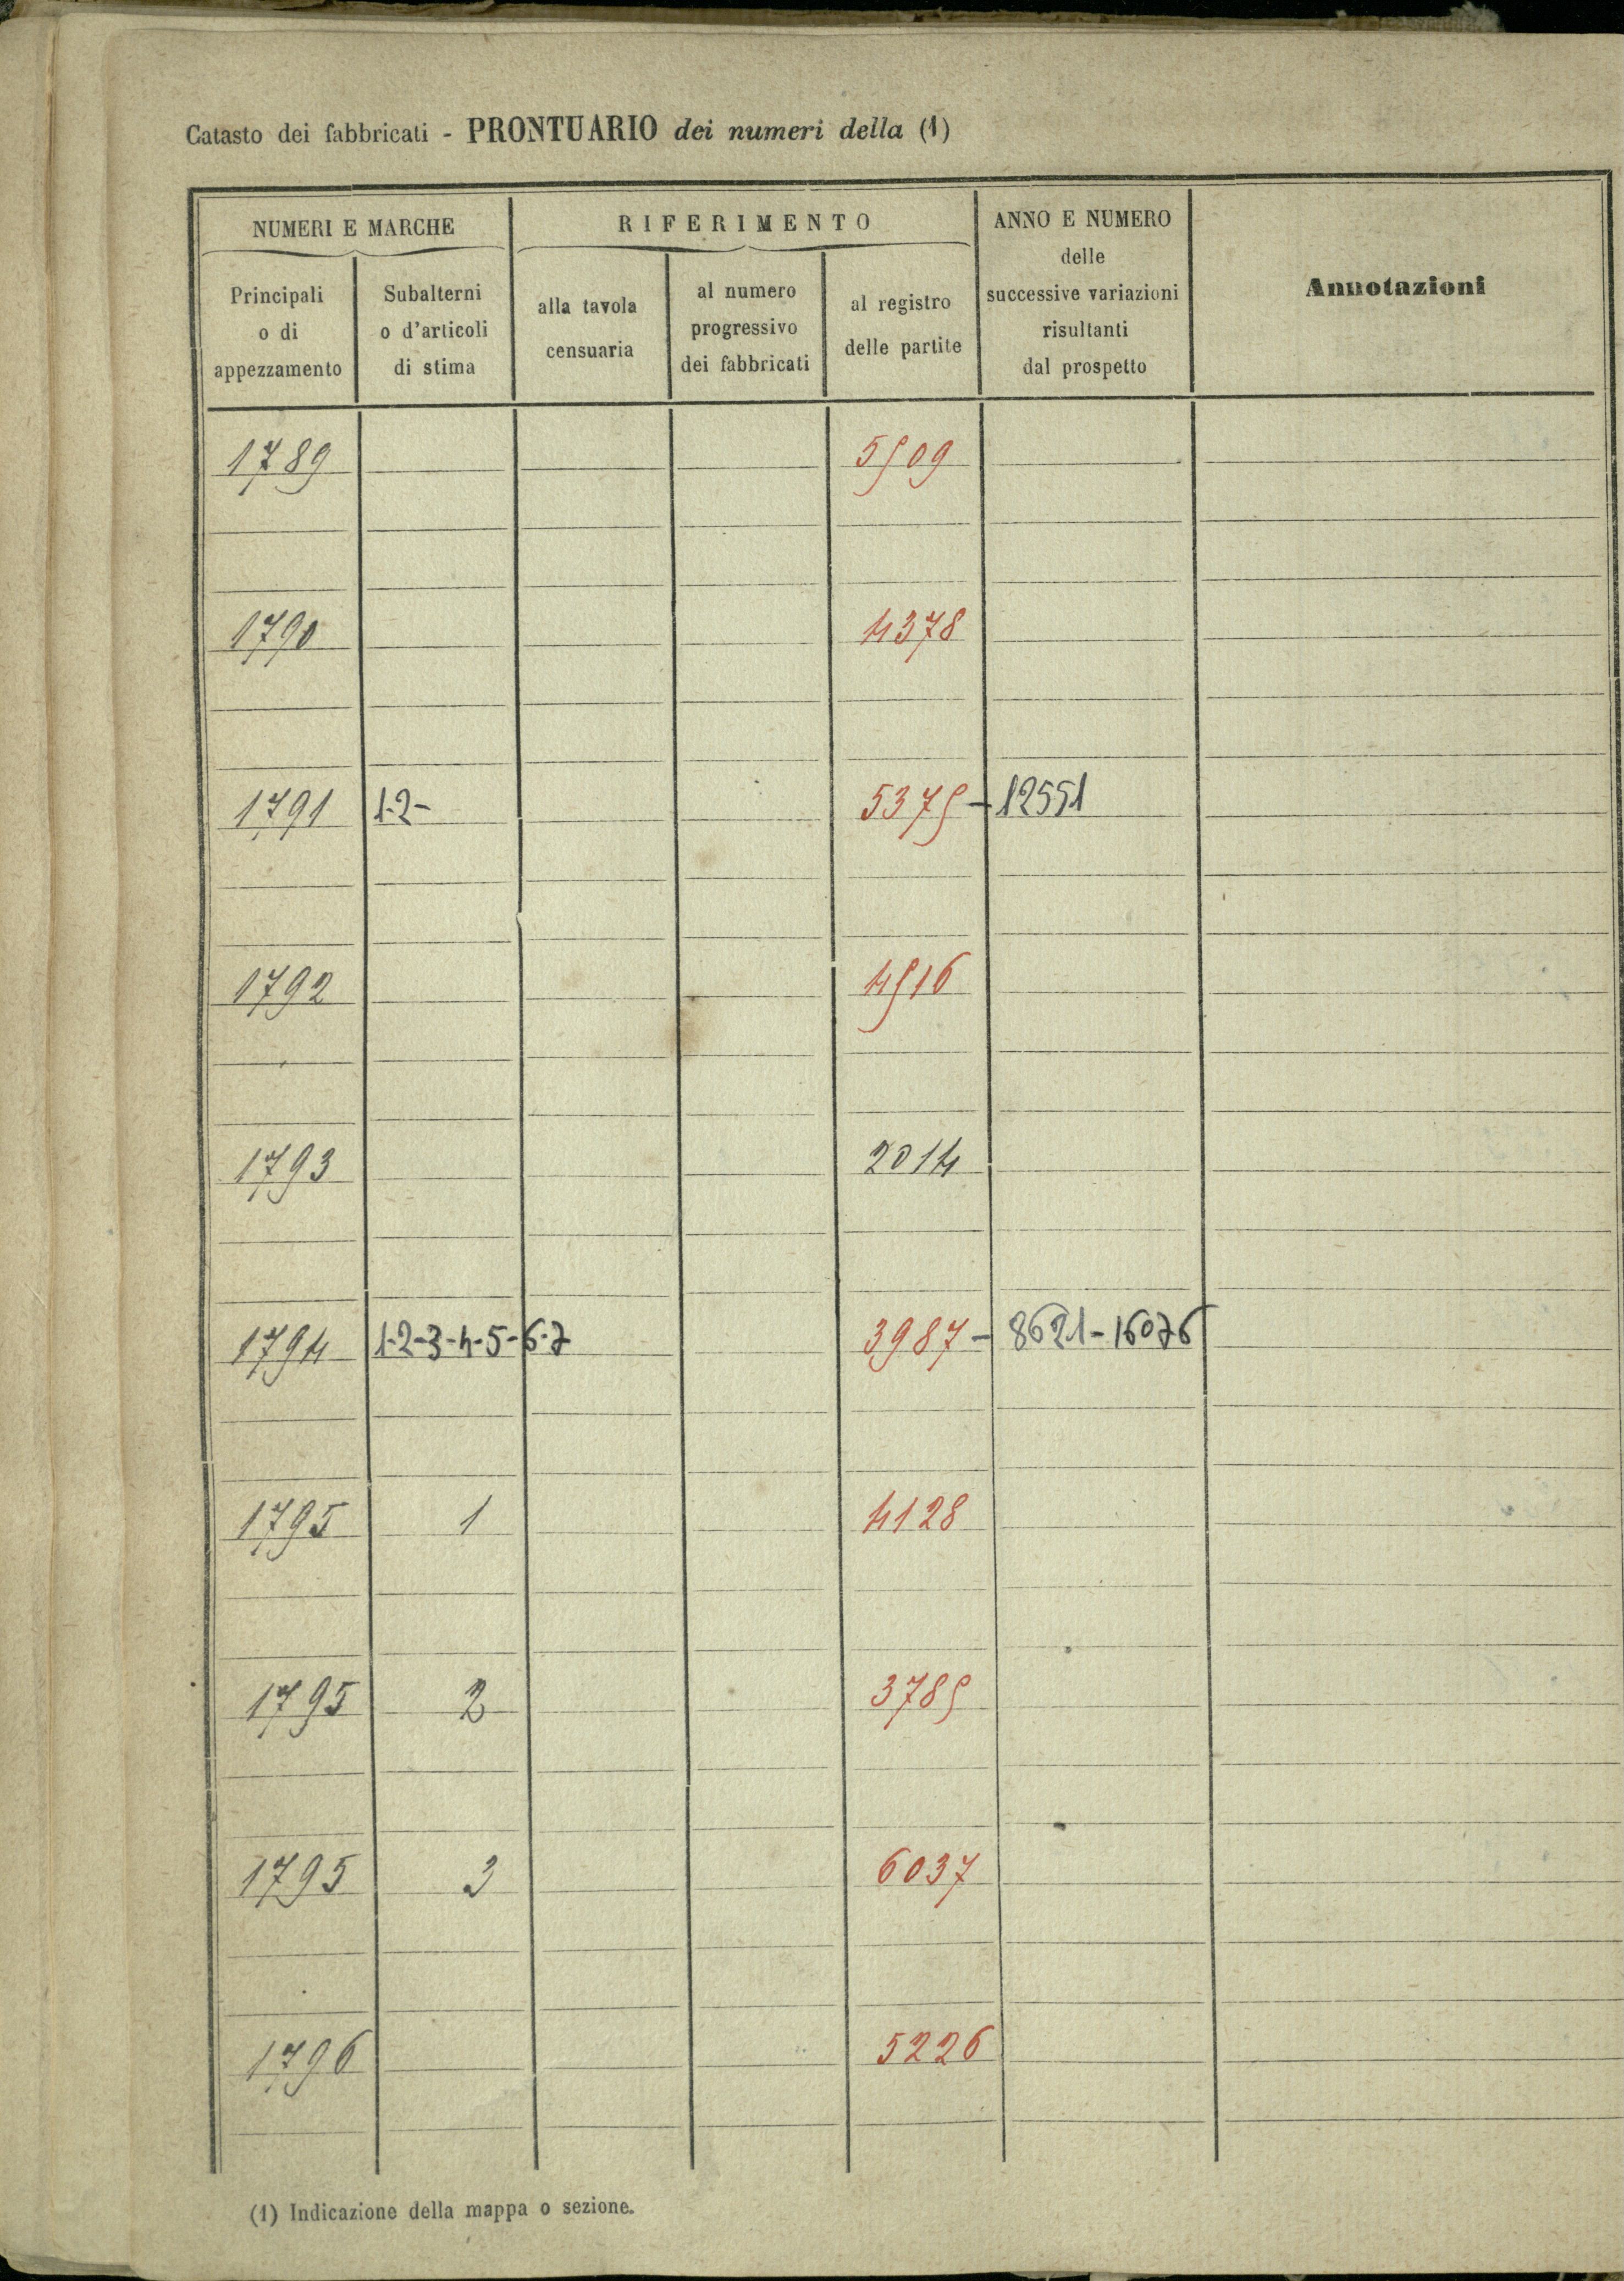 Catasto dei fabbricati - PRONTUARIO dei numeri della (1)
NUMERI E MARCHE
RIFERIMENTO
ANNO E NUMERO
delle
successive variazioni
risultanti
dal prospetto
Annotazioni
Principali
o di
appezzamento
Subalterni
o d'articoli
di stima
alla tavola
censuaria
al numero
progressivo
dei fabbricati
al registro
delle partite
1789 5509
1790 4378
1791 1-2- 5375 - 12551
1792 4516
1793 2014
1794 1-2-3-4-5-6-7 3987 - 8621-16076
1795 1 4128
1795 2 3785
1795 3 6037
1796 5226
(1) Indicazione della mappa o sezione.